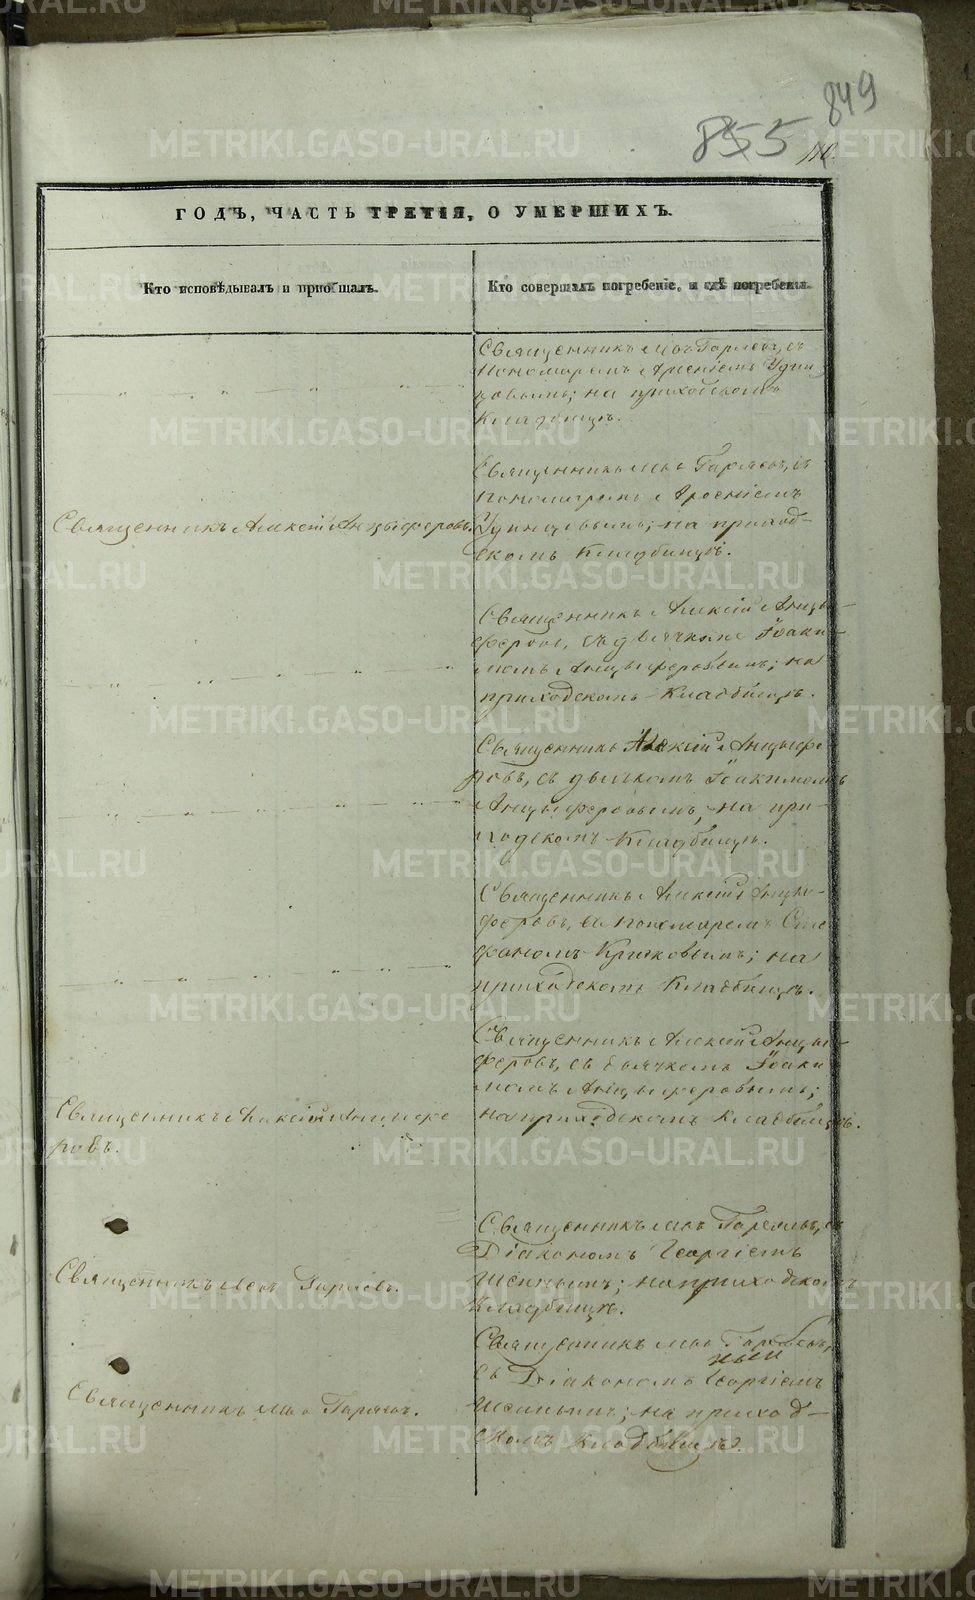 849
855
ГОДЪ, ЧАСТЬ ТРЕТІЯ, О УМЕРШИХЪ.
Кто исповѣдывалъ и пріобщалъ.
Кто совершалъ погребеніе, и гдѣ погребены.
Священникъ Іаковъ Горяевъ, съ
пономаремъ Арсеніемъ Удин
цовымъ; на приходскомъ
кладбищѣ.
Священникъ Алексій Анцыферовъ.
Священникъ Горяевъ, съ
пономаремъ Арсеніемъ
Удинцовымъ; на приход-
скомъ кладбищѣ.
Священникъ Алексій Анцы-
феровъ, съ дьячкомъ Іоаки-
момъ Анцыферовымъ; на
приходскомъ кладбищѣ.
Священникъ Алексій Анцыфе
ровъ, съ дьячкомъ Іоакимомъ
Анцыферовымъ, на при-
ходскомъ кладбищѣ.
Священникъ Алексій Анцы-
феровъ, съ пономаремъ Сте
фаномъ на
приходскомъ кладбищѣ.
Священникъ Алексій Анцыфе
ровъ.
Священникъ Алексій Анцы-
феровъ, съ дьячкомъ Іоаки
момъ Анцыферовымъ;
на приходскомъ кладбищѣ.
Священникъ Горяевъ.
Священникъ Горяевъ, съ
Діакономъ Георгіемъ
на приходскомъ
кладбищѣ.
Священникъ Горяевъ.
Священникъ Горяевъ,
съ Діакономъ Георгіемъ
на приход-
скомъ кладбищѣ.
METRIKI.GASO-URAL.RU